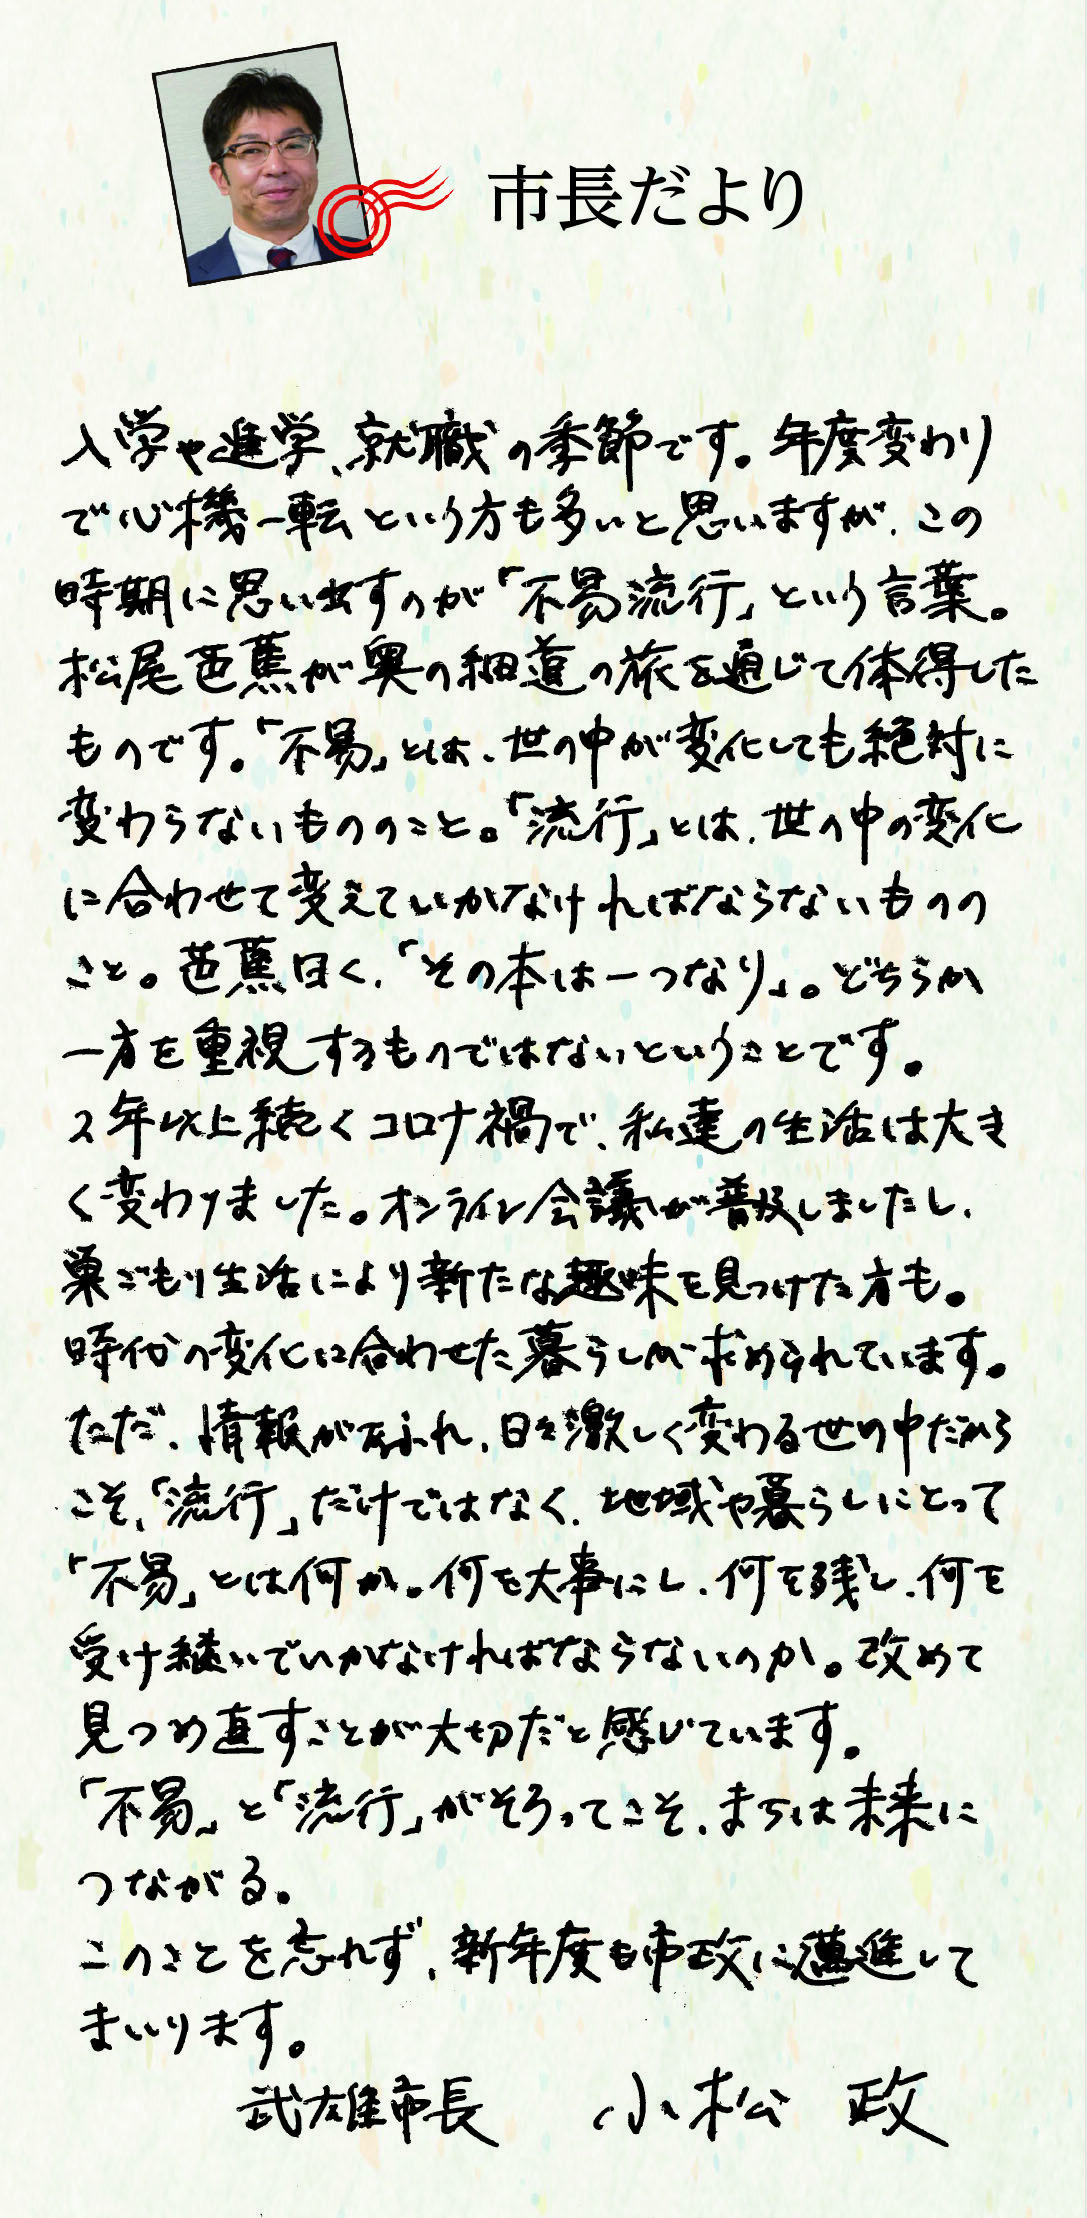 市長だより
入学や進学、就職の季節です。年度変わり
で心機一転という方も多いと思いますが、この
時期に思い出すのが「不易流行」という言葉。
松尾芭蕉が奥の細道の旅を通じて体得した
ものです。「不易」とは、世の中が変化しても絶対に
変わらないもののこと。「流行」とは、世の中の変化
に合わせて変えていかなければならないものの
こと。芭蕉曰く、「その本は一つなり」。どちらか
一方を重視するものではないということです。
2年以上続くコロナ禍で、私達の生活は大き
く変わりました。オンライン会議が普及しましたし、
巣ごもり生活により新たな趣味を見つけた方も。
時代の変化に合わせた暮らしが求められています。
ただ、情報があふれ、日々激しく変わる世の中だから
こそ、「流行」だけではなく、地域や暮らしにとって
「不易」とは何か。何を大事にし、何を残し、何を
受け継いでいかなければならないのか。改めて
見つめ直すことが大切だと感じています。
「不易」と「流行」がそろってこそ、まちは未来に
つながる。
このことを忘れず、新年度も市政に邁進して
まいります。
武雄市長 小松 政